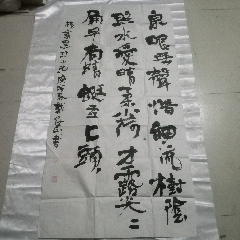 泉眼無聲惜細流樹陰
照水愛晴柔小荷才露尖々
角早有蜻蜓立上頭
小池
書